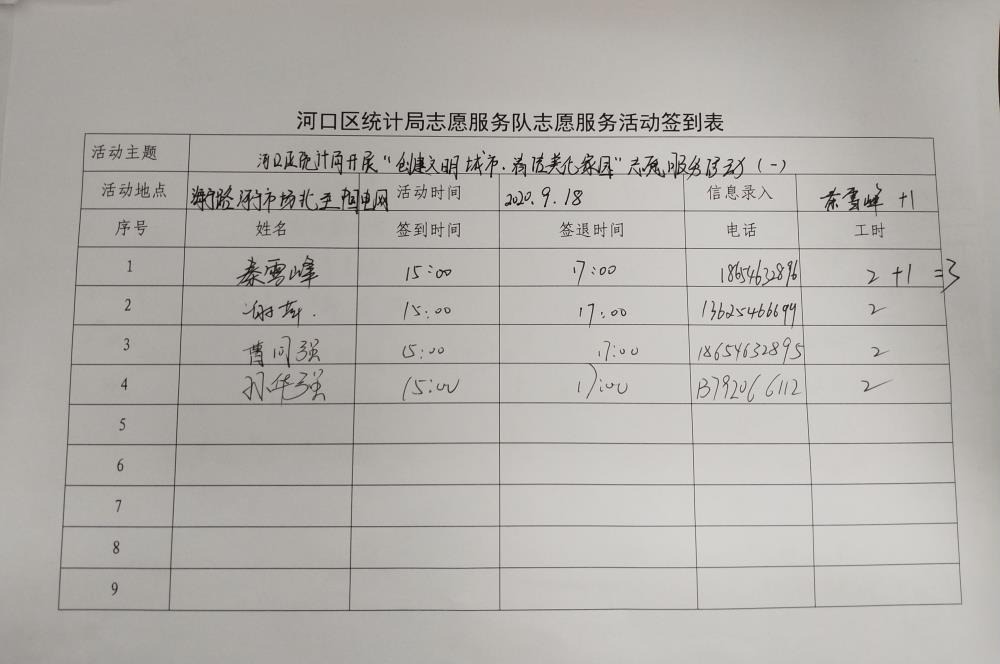 河口区统计局志愿服务队志愿服务活动签到表
活动主题 河口区统计局开展“创建文明城市、清洁美化家园”志愿服务活动（一）
活动地点 海宁路河宁市场北至中国电网 活动时间 2020.9.18 信息录入 秦雪峰 +1
序号 姓名 签到时间 签退时间 电话 工时
1 秦雪峰 15:00 17:00 18654632896 2+1=3
2 谢萍. 15:00 17:00 13625466699 2
3 曹同强 15:00 17:00 18654632895 2
4 孙华强 15:00 17:00 13792066112 2
5
6
7
8
9